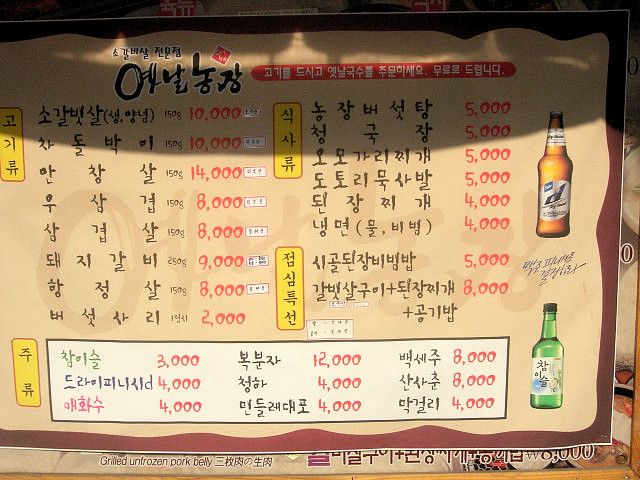 소갈비살 전문점
옛날농장
고기를 드시고 옛날국수를 주문하세요. 무료로 드립니다.
고기류
소갈빗살(생,양념) 150g 10,000
차돌박이 150g 10,000
안창살 150g 14,000
우삼겹 150g 8,000
삼겹살 150g 8,000
돼지갈비 250g 9,000
항정살 150g 8,000
버섯사리 1접시 2,000
식사류
농장버섯탕 5,000
청국장 5,000
오모가리찌개 5,000
도토리묵사발 5,000
된장찌개 4,000
냉면(물,비빔) 4,000
점심특선
시골된장비빔밥 5,000
갈빗살구이+된장찌개 8,000
+공기밥
주류
참이슬 3,000
드라이피니시d 4,000
매화수 4,000
복분자 12,000
청하 4,000
민들레대포 4,000
백세주 8,000
산사춘 8,000
막걸리 4,000
맥주, 피니쉬로
결정하라~
참이슬
Grilled unfrozen pork belly 三枚肉の生肉
비살구이+된장찌개+공기밥 ₩8,000